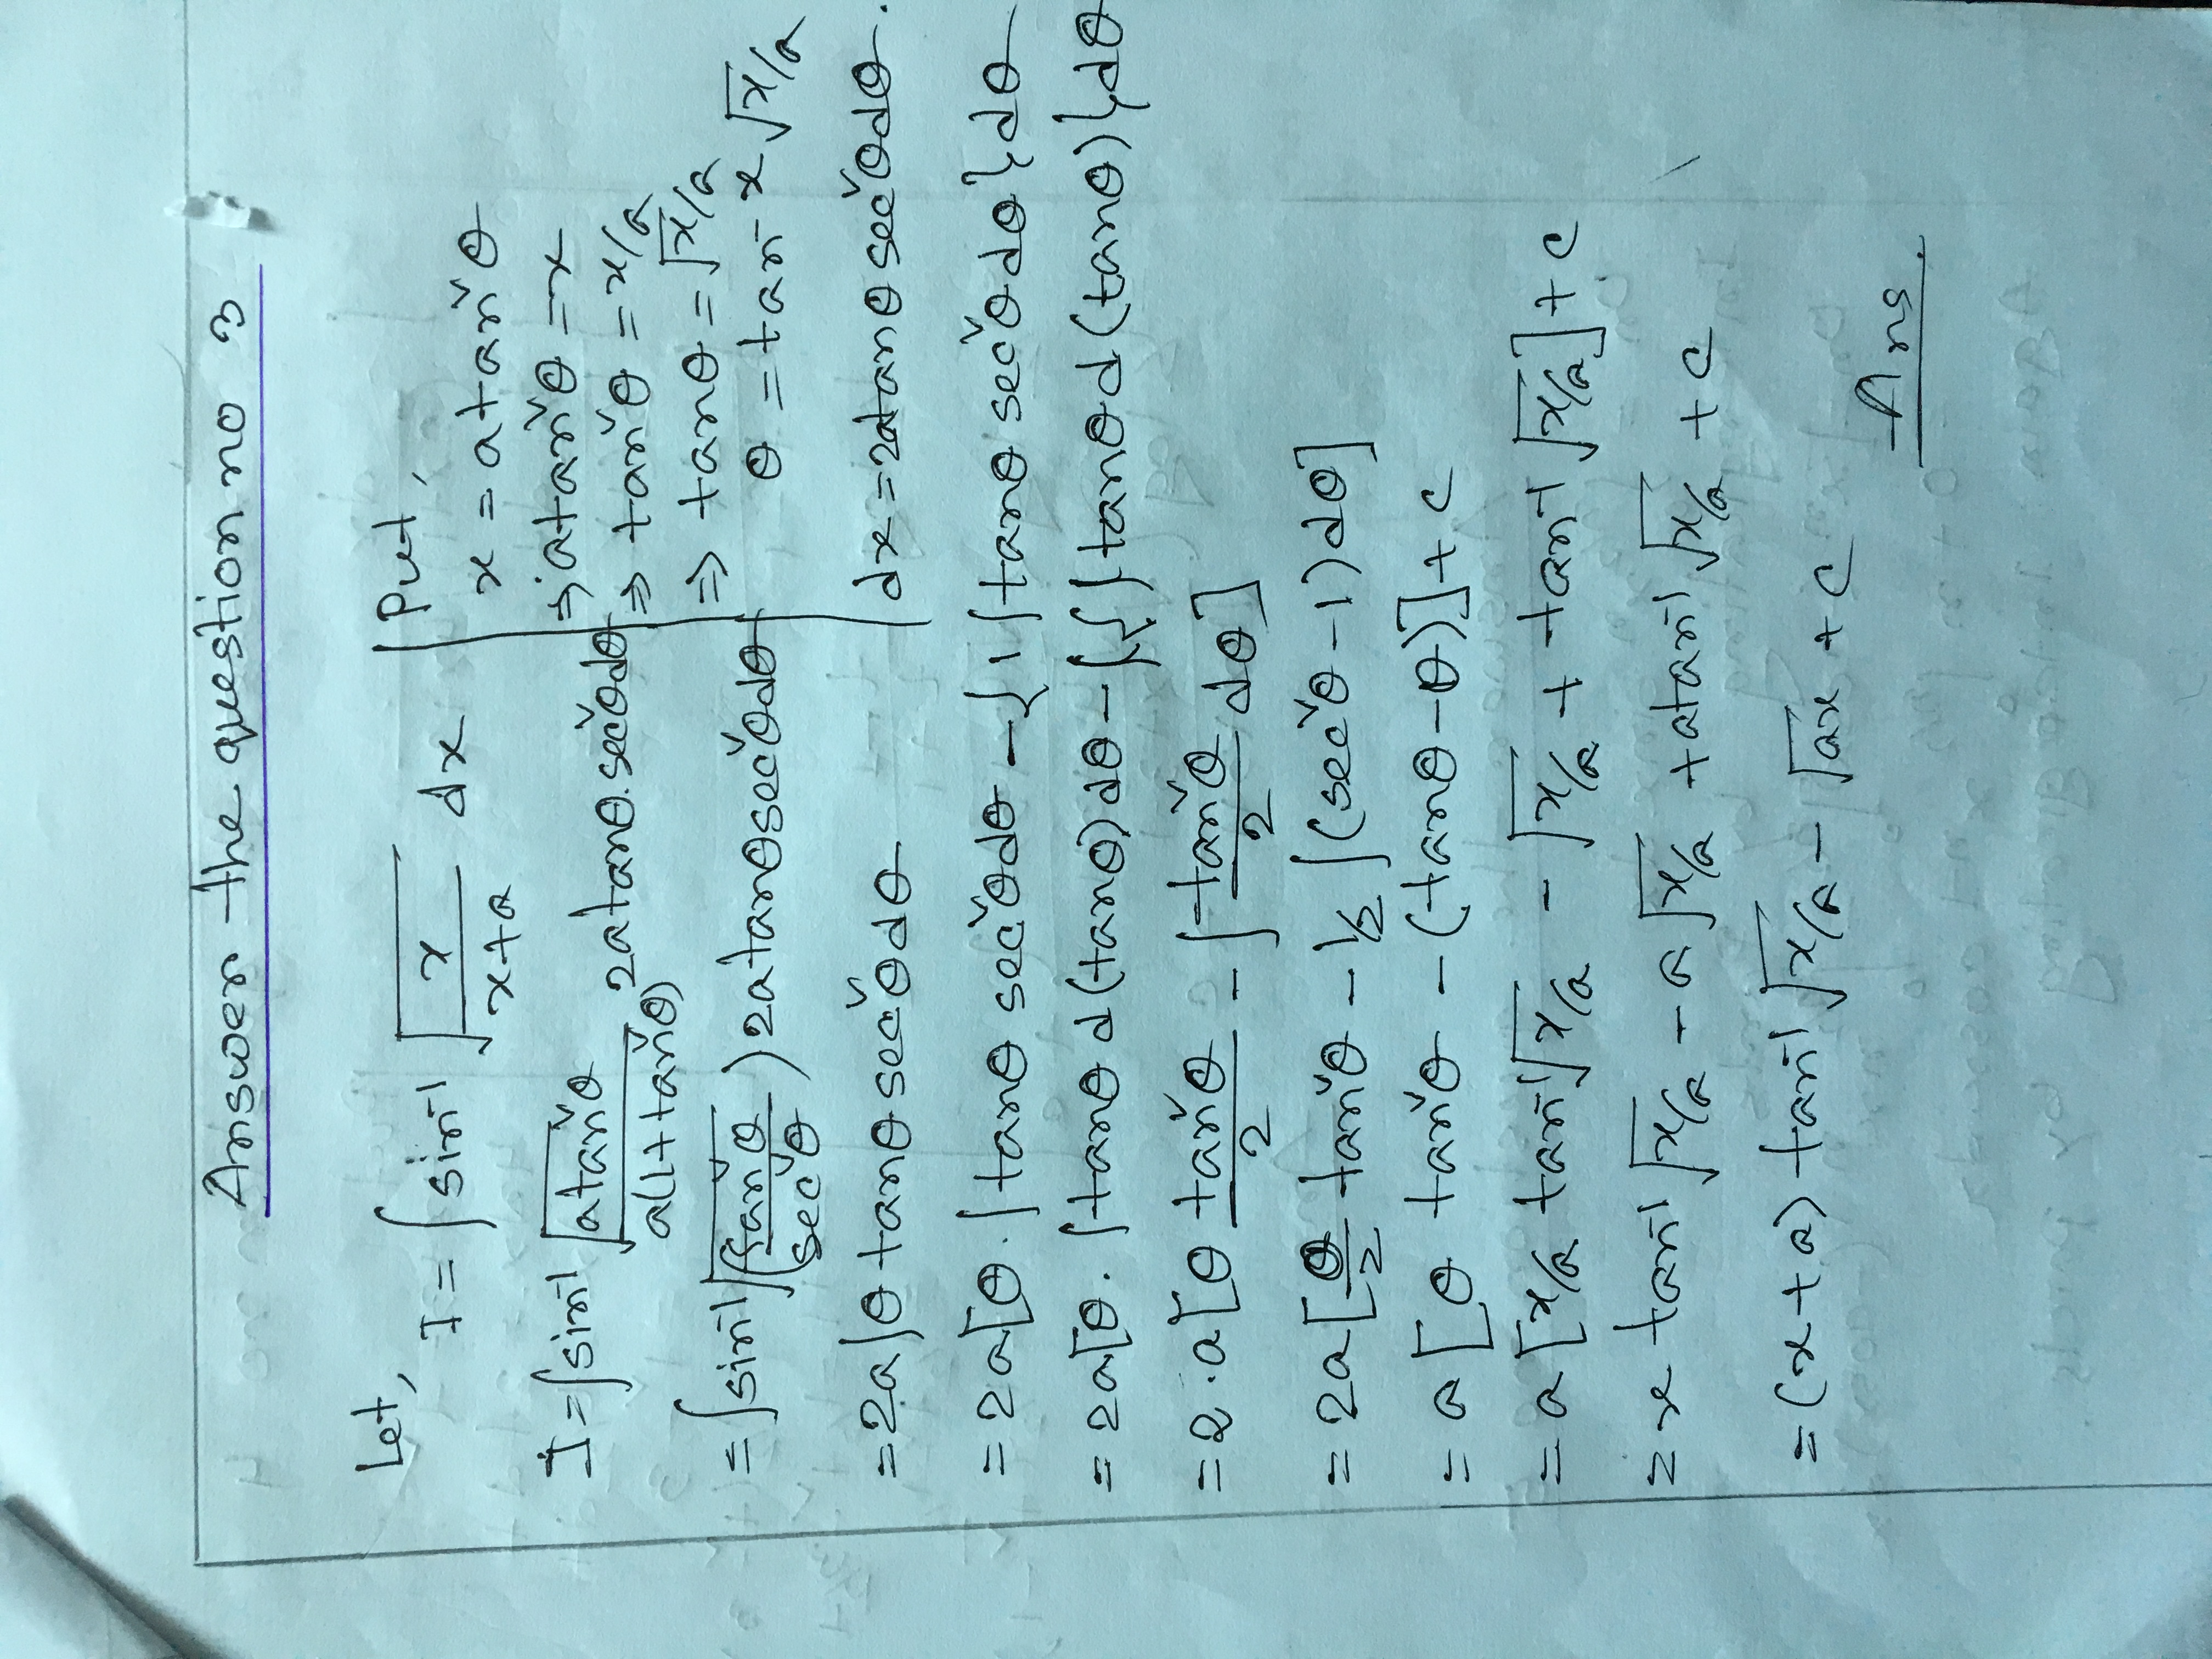 Answer the question no 3
Let,
I = ∫ sin⁻¹ √(x/(x+a)) dx
I = ∫ sin⁻¹ √(a tan²θ / a(1+tan²θ)) 2a tanθ. sec²θ dθ
= ∫ sin⁻¹ √(tan²θ / sec²θ) ) 2a tanθ sec²θ dθ
= 2a ∫ θ tanθ sec²θ dθ
Put,
x = a tan²θ
⇒ a tan²θ = x
⇒ tan²θ = x/a
⇒ tanθ = √x/a
θ = tan⁻ˣ √x/a
dx = 2a tanθ sec²θ dθ.
= 2a [θ. ∫ tanθ sec²θ dθ - { 1 ∫ tanθ sec²θ dθ } dθ
= 2a [θ. ∫ tanθ d(tanθ) dθ - ∫ { ∫ tanθ d(tanθ) } dθ
= 2 . a [θ tan²θ/2 - ∫ tan²θ/2 dθ]
= 2a [θ/2 tan²θ - 1/2 ∫ (sec²θ - 1) dθ]
= a [θ tan²θ - (tanθ - θ)] + c
= a [x/a tan⁻¹ √x/a - √x/a + tan⁻¹ √x/a] + c
= x tan⁻¹ √x/a - a √x/a + a tan⁻¹ √x/a + c
= (x+a) tan⁻¹ √x/a - √ax + c
Ans.